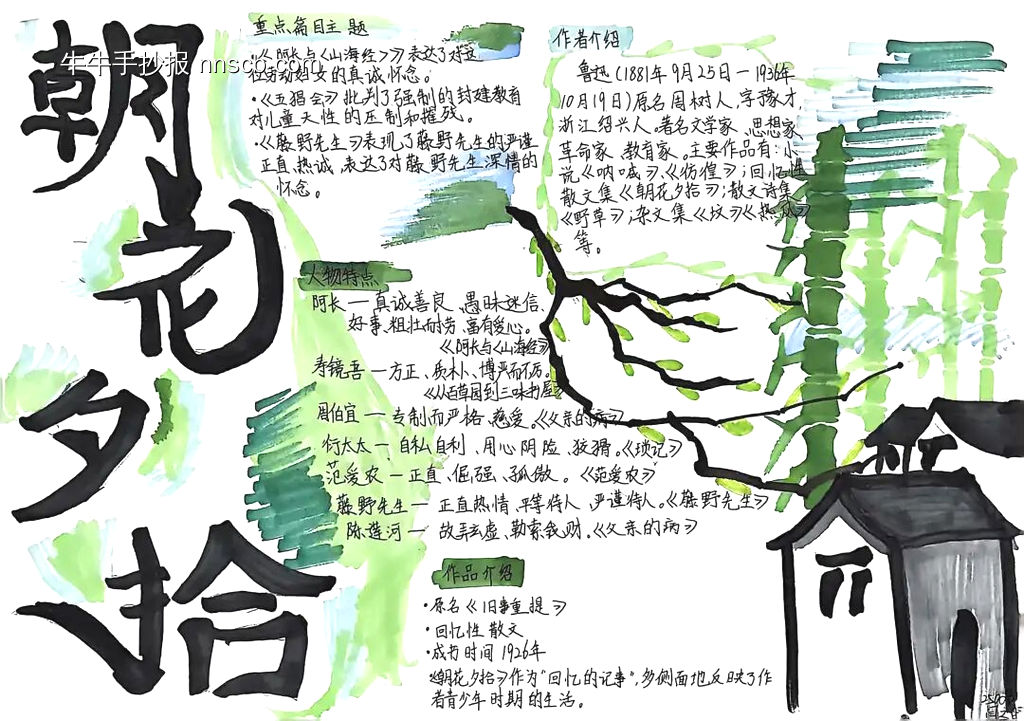 朝花夕拾
牛牛手抄报 nnscb.com
重点篇目主题
·《阿长与《山海经》》表达了对这
位劳动妇女的真诚怀念。
·《五猖会》批判了强制的封建教育
对儿童天性的压制和摧残。
·《藤野先生》表现了藤野先生的严谨
正直、热诚、表达了对藤野先生深情的
怀念。
作者介绍
鲁迅(1881年9月25日—1936年
10月19日)原名周树人,字豫才,
浙江绍兴人。著名文学家、思想家
革命家、教育家。主要作品有:小
说《呐喊》、《彷徨》;回忆性
散文集《朝花夕拾》;散文诗集
《野草》;杂文集《坟》《热风》
等。
人物特点
阿长—真诚善良、愚昧迷信、
好事、粗壮耐劳、富有爱心。
《阿长与《山海经》
寿镜吾—方正、质朴、博严而不厉。
《从百草园到三味书屋》
周伯宜—专制而严格、慈爱。《父亲的病》
衍太太—自私自利、用心阴险、狡猾。《琐记》
范爱农—正直、倔强、孤傲。《范爱农》
藤野先生—正直热情、平等待人、严谨待人。《藤野先生》
陈莲河—故弄玄虚、勒索钱财。《父亲的病》
作品介绍
·原名《旧事重提》
·回忆性散文
·成书时间1926年
《朝花夕拾》作为"回忆的记事",多侧面地反映了作
者青少年时期的生活。